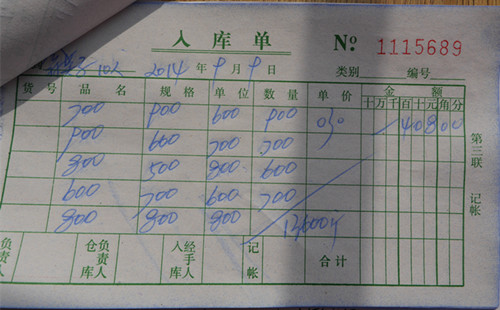 入库单 No 1115689
2014年9月9日 类别 编号
货号 品名 规格 单位 数量 单价 金额
十万千百十元角分
700 900 600 900 0.30 40800
900 600 700 700
800 500 800 600
600 700 600 700
800 800 800 13600斤
负责人 仓库负责人 入库经手人 记帐 合计
第三联 记帐